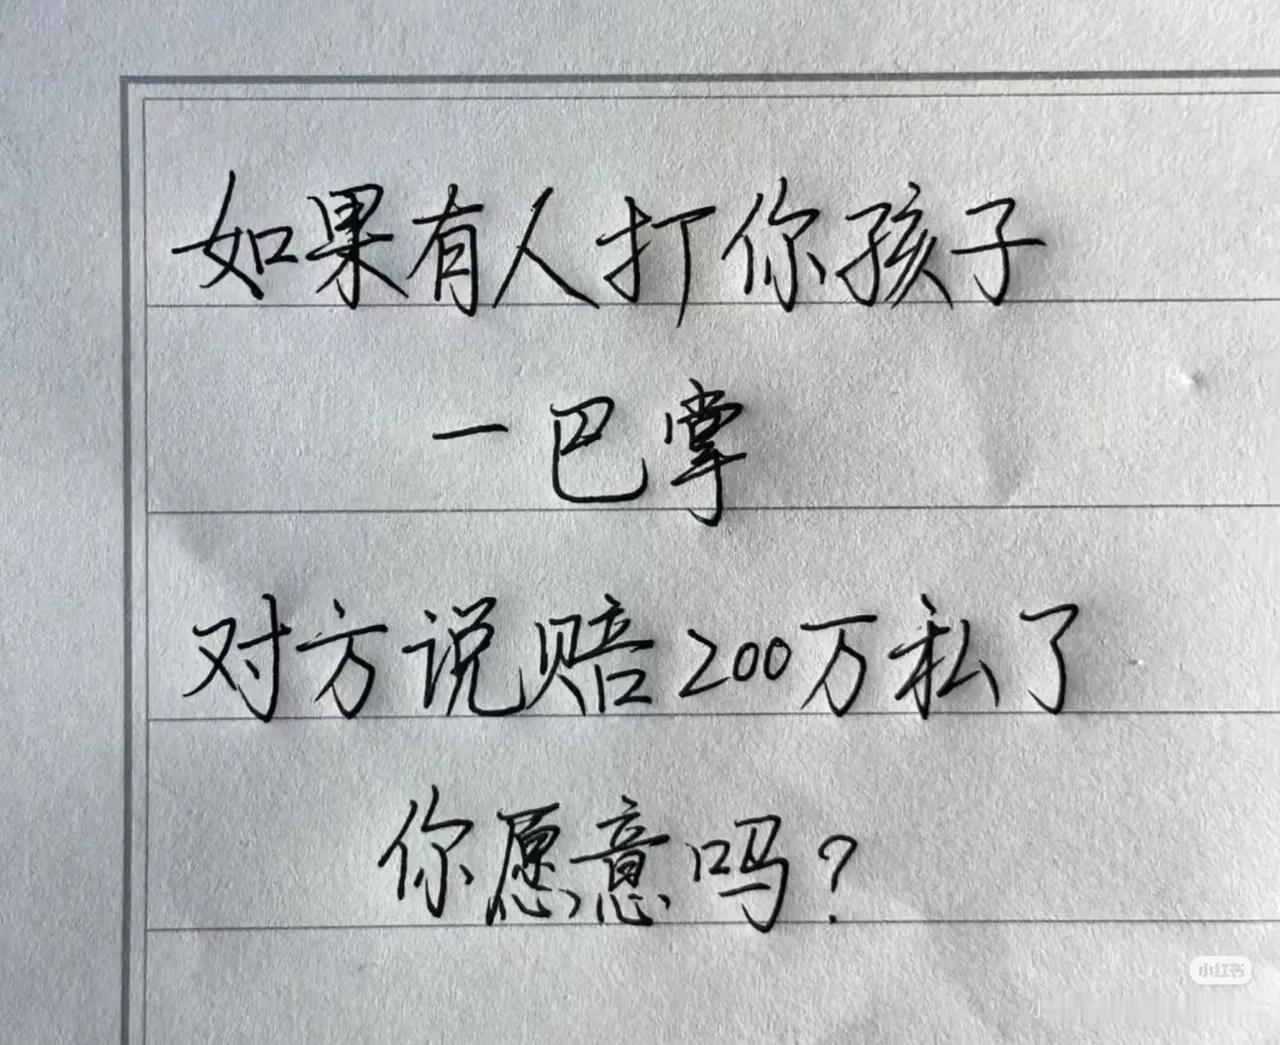 如果有人打你孩子
一巴掌
对方说赔200万私了
你愿意吗?
小红书